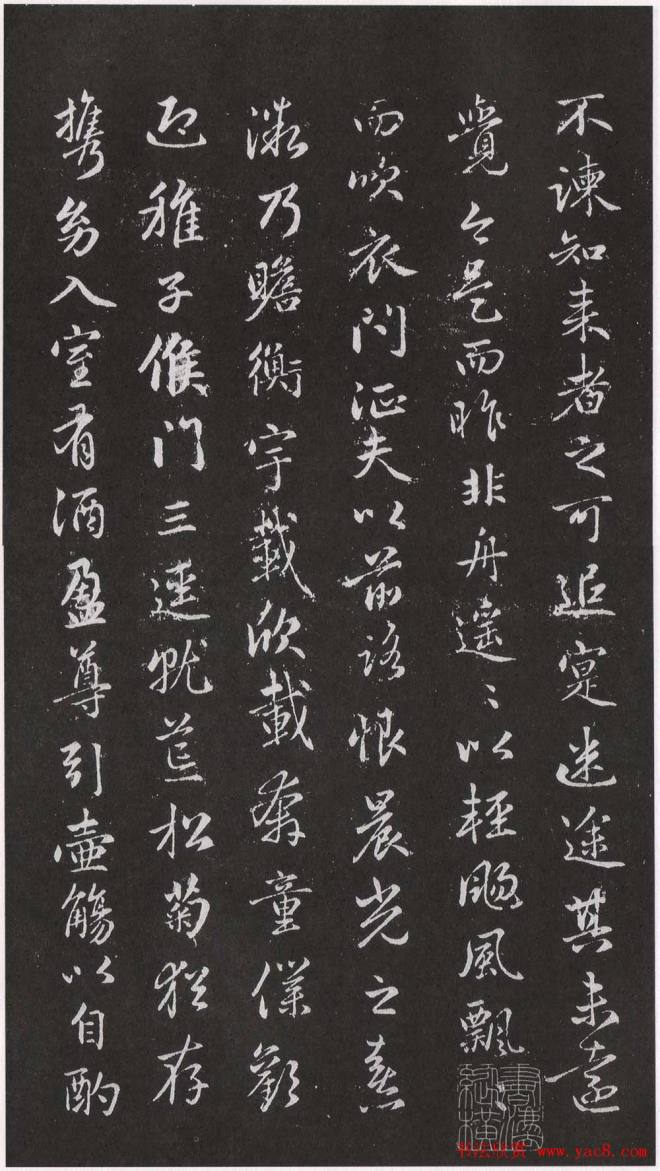 不諫知来者之可追寔迷途其未遠
覺今是而昨非舟遥〻以軽颺風飄〻
而吹衣问征夫以前路恨晨光之熹
微乃瞻衡宇載欣載奔童僕歡
迎稚子候门三逕就荒松菊猶存
携幼入室有酒盈尊引壺觴以自酌
书法欣赏 www.yac8.com